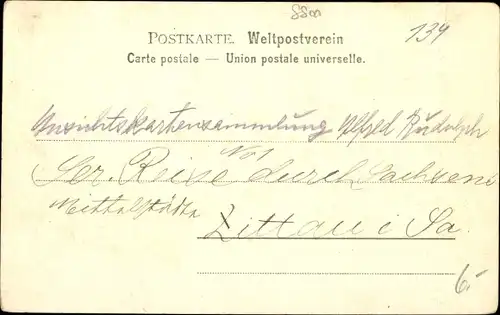 8800
139
POSTKARTE. Weltpostverein
Carte postale — Union postale universelle.
Ansichtskartensammlung Alfred Rudolph
No 1
Ser. Reise durch Sachsens
Mittelstädte
Zittau i Sa.
6.-